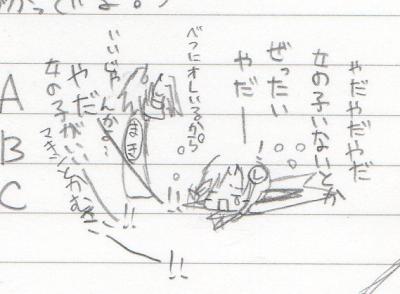 やだやだやだ
女の子いないとか
ぜったい
やだー
!
し
べつにオレいるから
いいじゃ
んか。…
まき
!!
やだ
女の子がいい
マキシとかむさ
!!
!!
A
B
C